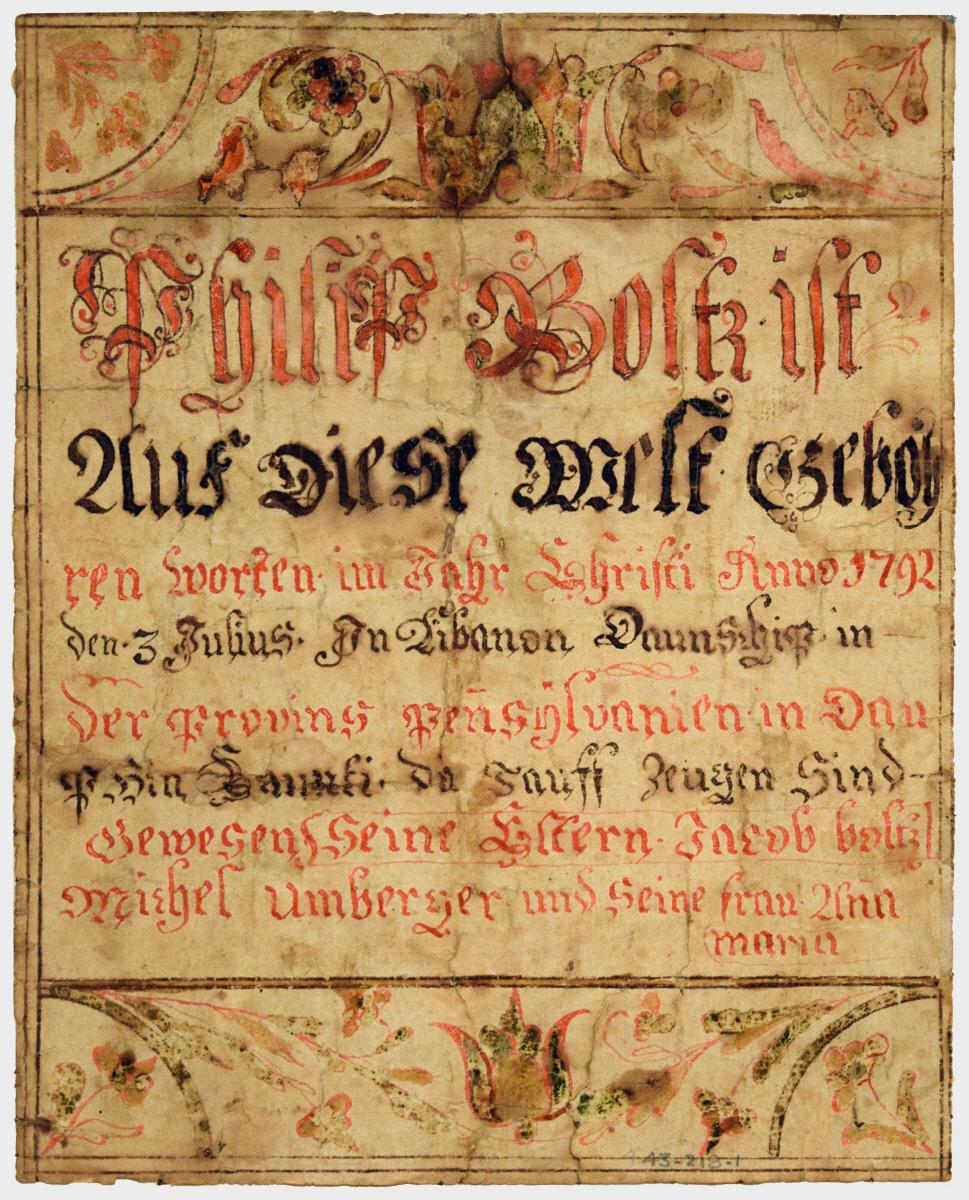 Philip Boltz ist
Auf Diese Welt Geboh
ren worten im Jahr Christi Anno 1792
den 3 Julius. In Libanon Daunschip in
der Provins Pensylvanien in Dau
phin Caunti. Da Tauff Zeugen Sind
Gewesen Seine Eltern. Jacob boltz
Michel Umberger und Seine frau Ana
maria
43-218-1